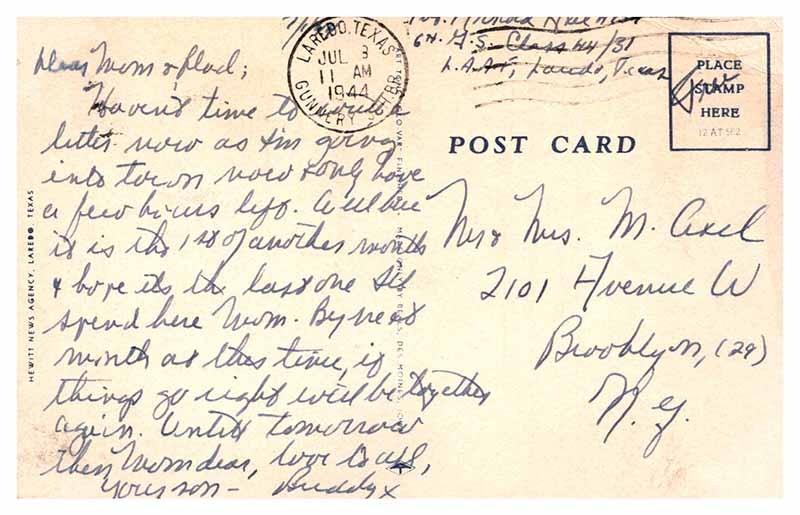 7/1/44
Dear Mom & Dad;
Haven't time to write a
letter now as I'm going
into town now & only have
a few hours left. Well here
it is the 1st of another month
& hope its the last one I'll
spend here Mom. By next
month at this time, if
things go right we'll be together
again. Until tomorrow
then Mom dear, love to all,
Your son - Buddy x
HEWITT NEWS AGENCY, LAREDO, TEXAS
LAREDO, TEXAS
JUL 3
11 AM
1944
GUNNERY
Pvt. Richard
G.S. Class 44/31
L.A.A.F., Laredo, Texas
Free
PLACE
STAMP
HERE
POST CARD
Mr & Mrs. M. Axel
2101 Avenue W
Brooklyn, (29)
N.Y.